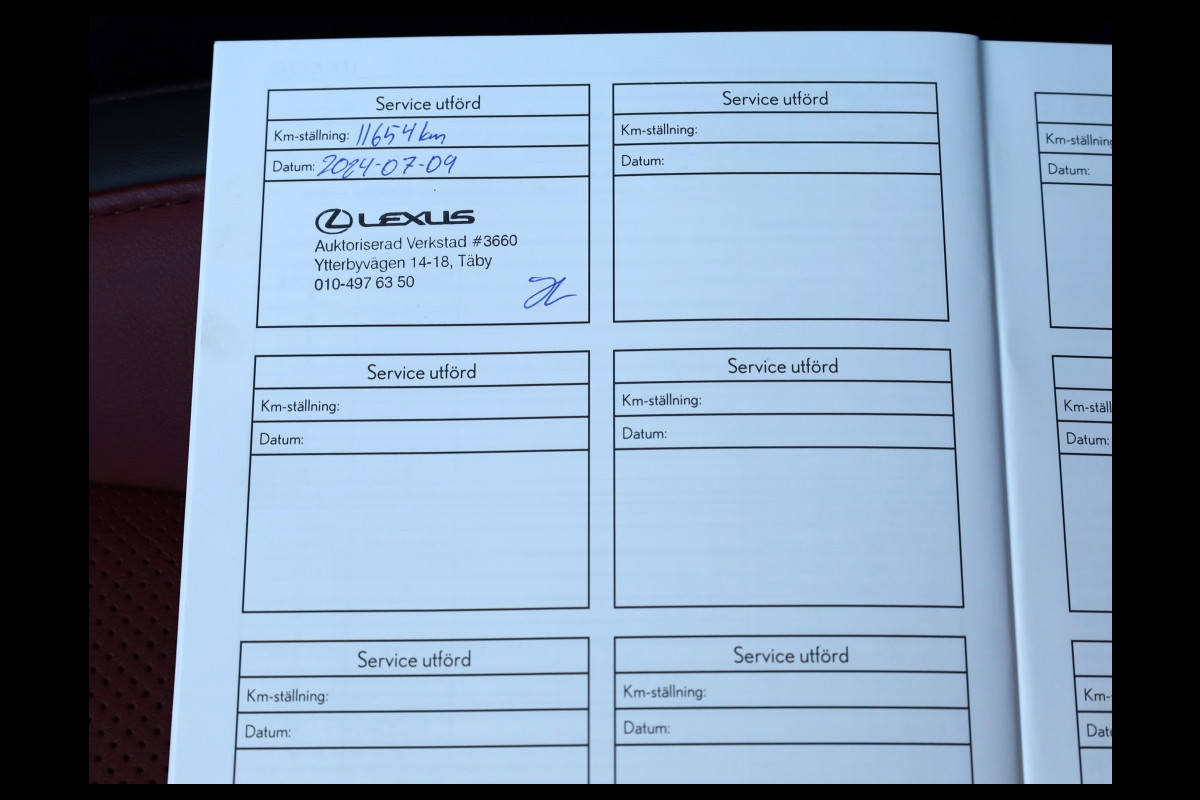 Service utförd
Km-ställning: 11654 km
Datum: 2024-07-09
LEXUS
Auktoriserad Verkstad #3660
Ytterbyvägen 14-18, Täby
010-497 63 50
Service utförd
Km-ställning:
Datum:
Km-ställning
Datum:
Service utförd
Km-ställning:
Datum:
Service utförd
Km-ställning:
Datum:
Km-ställ
Datum:
Service utförd
Km-ställning:
Datum:
Service utförd
Km-ställning:
Datum:
Km-
Dat